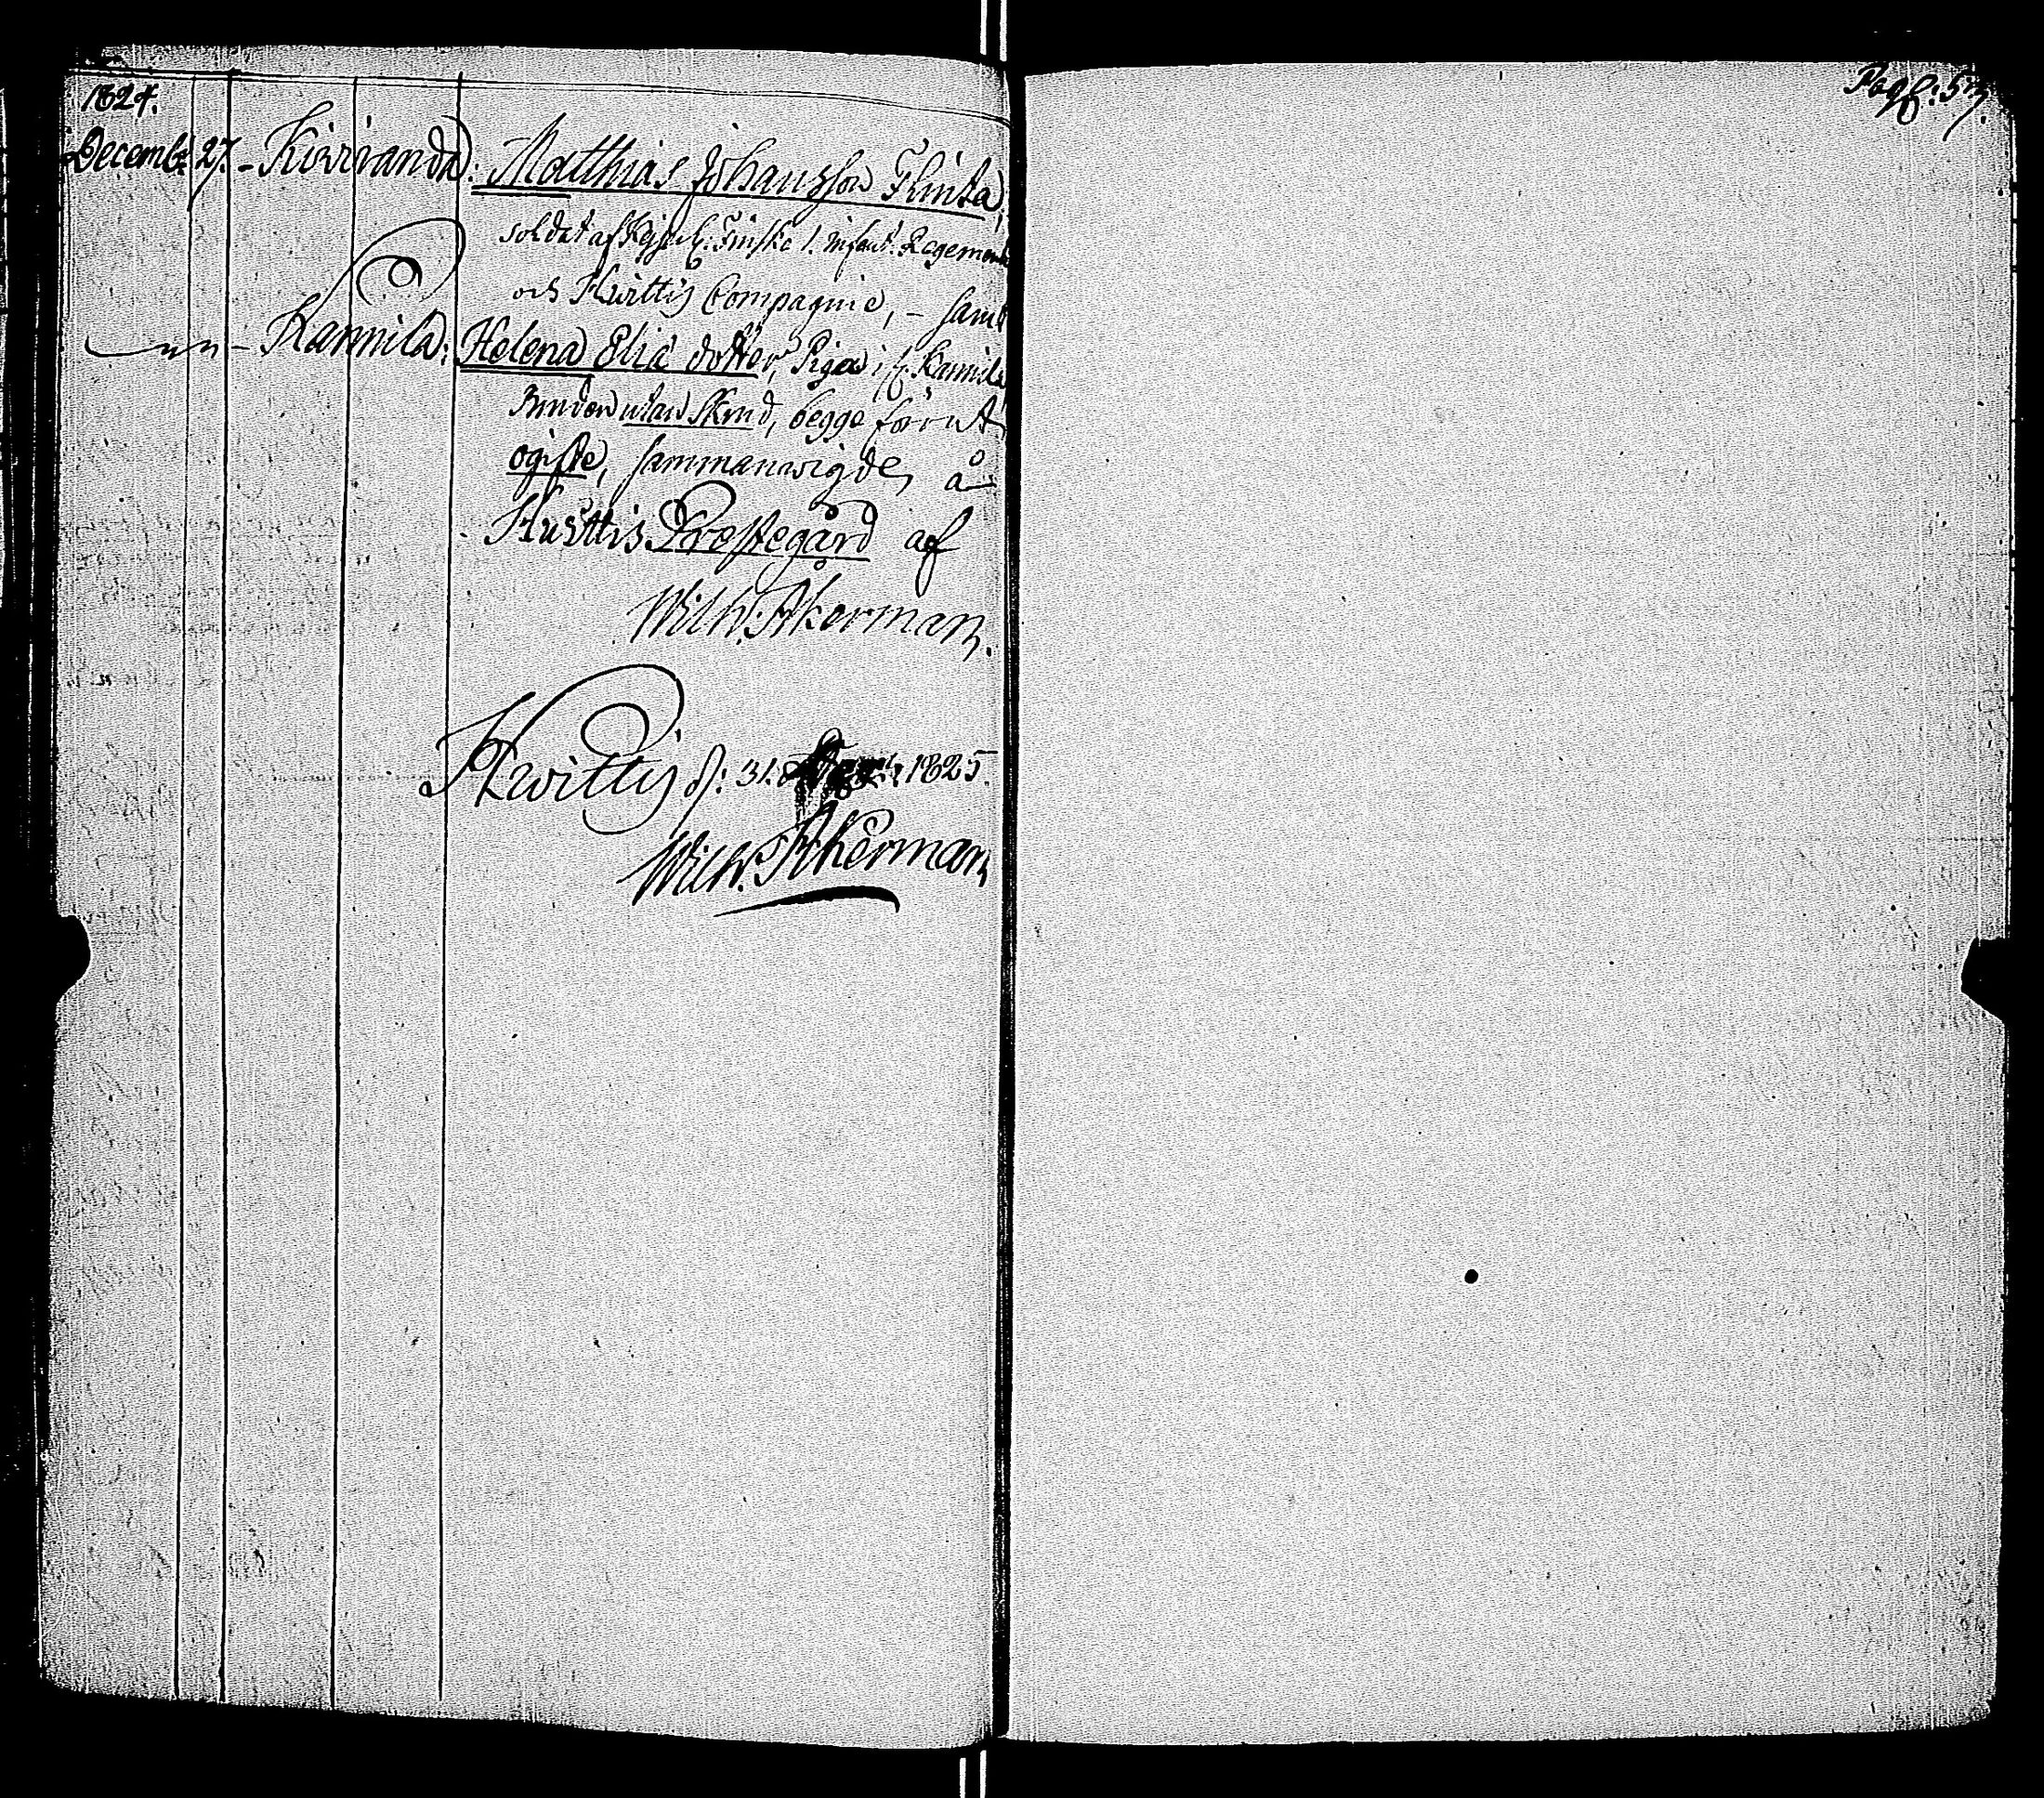 1824.
Decembr 27. - Kiviranda: Matthias Johansson Flinta,
soldat af Kejserl: Finske 1. infant. Regemente
och Hvittis Compagnie, - samt
- " - Kamila: Helena Eliæ dotter, Piga i f. Kamila
utan Skrud, begge förut
ogifte, sammanwigde, å
Hvittis Prestegård af
Wilh. Åkerman.
Hwittis d: 31. 1825.
Wilh. Åkerman
Pag: